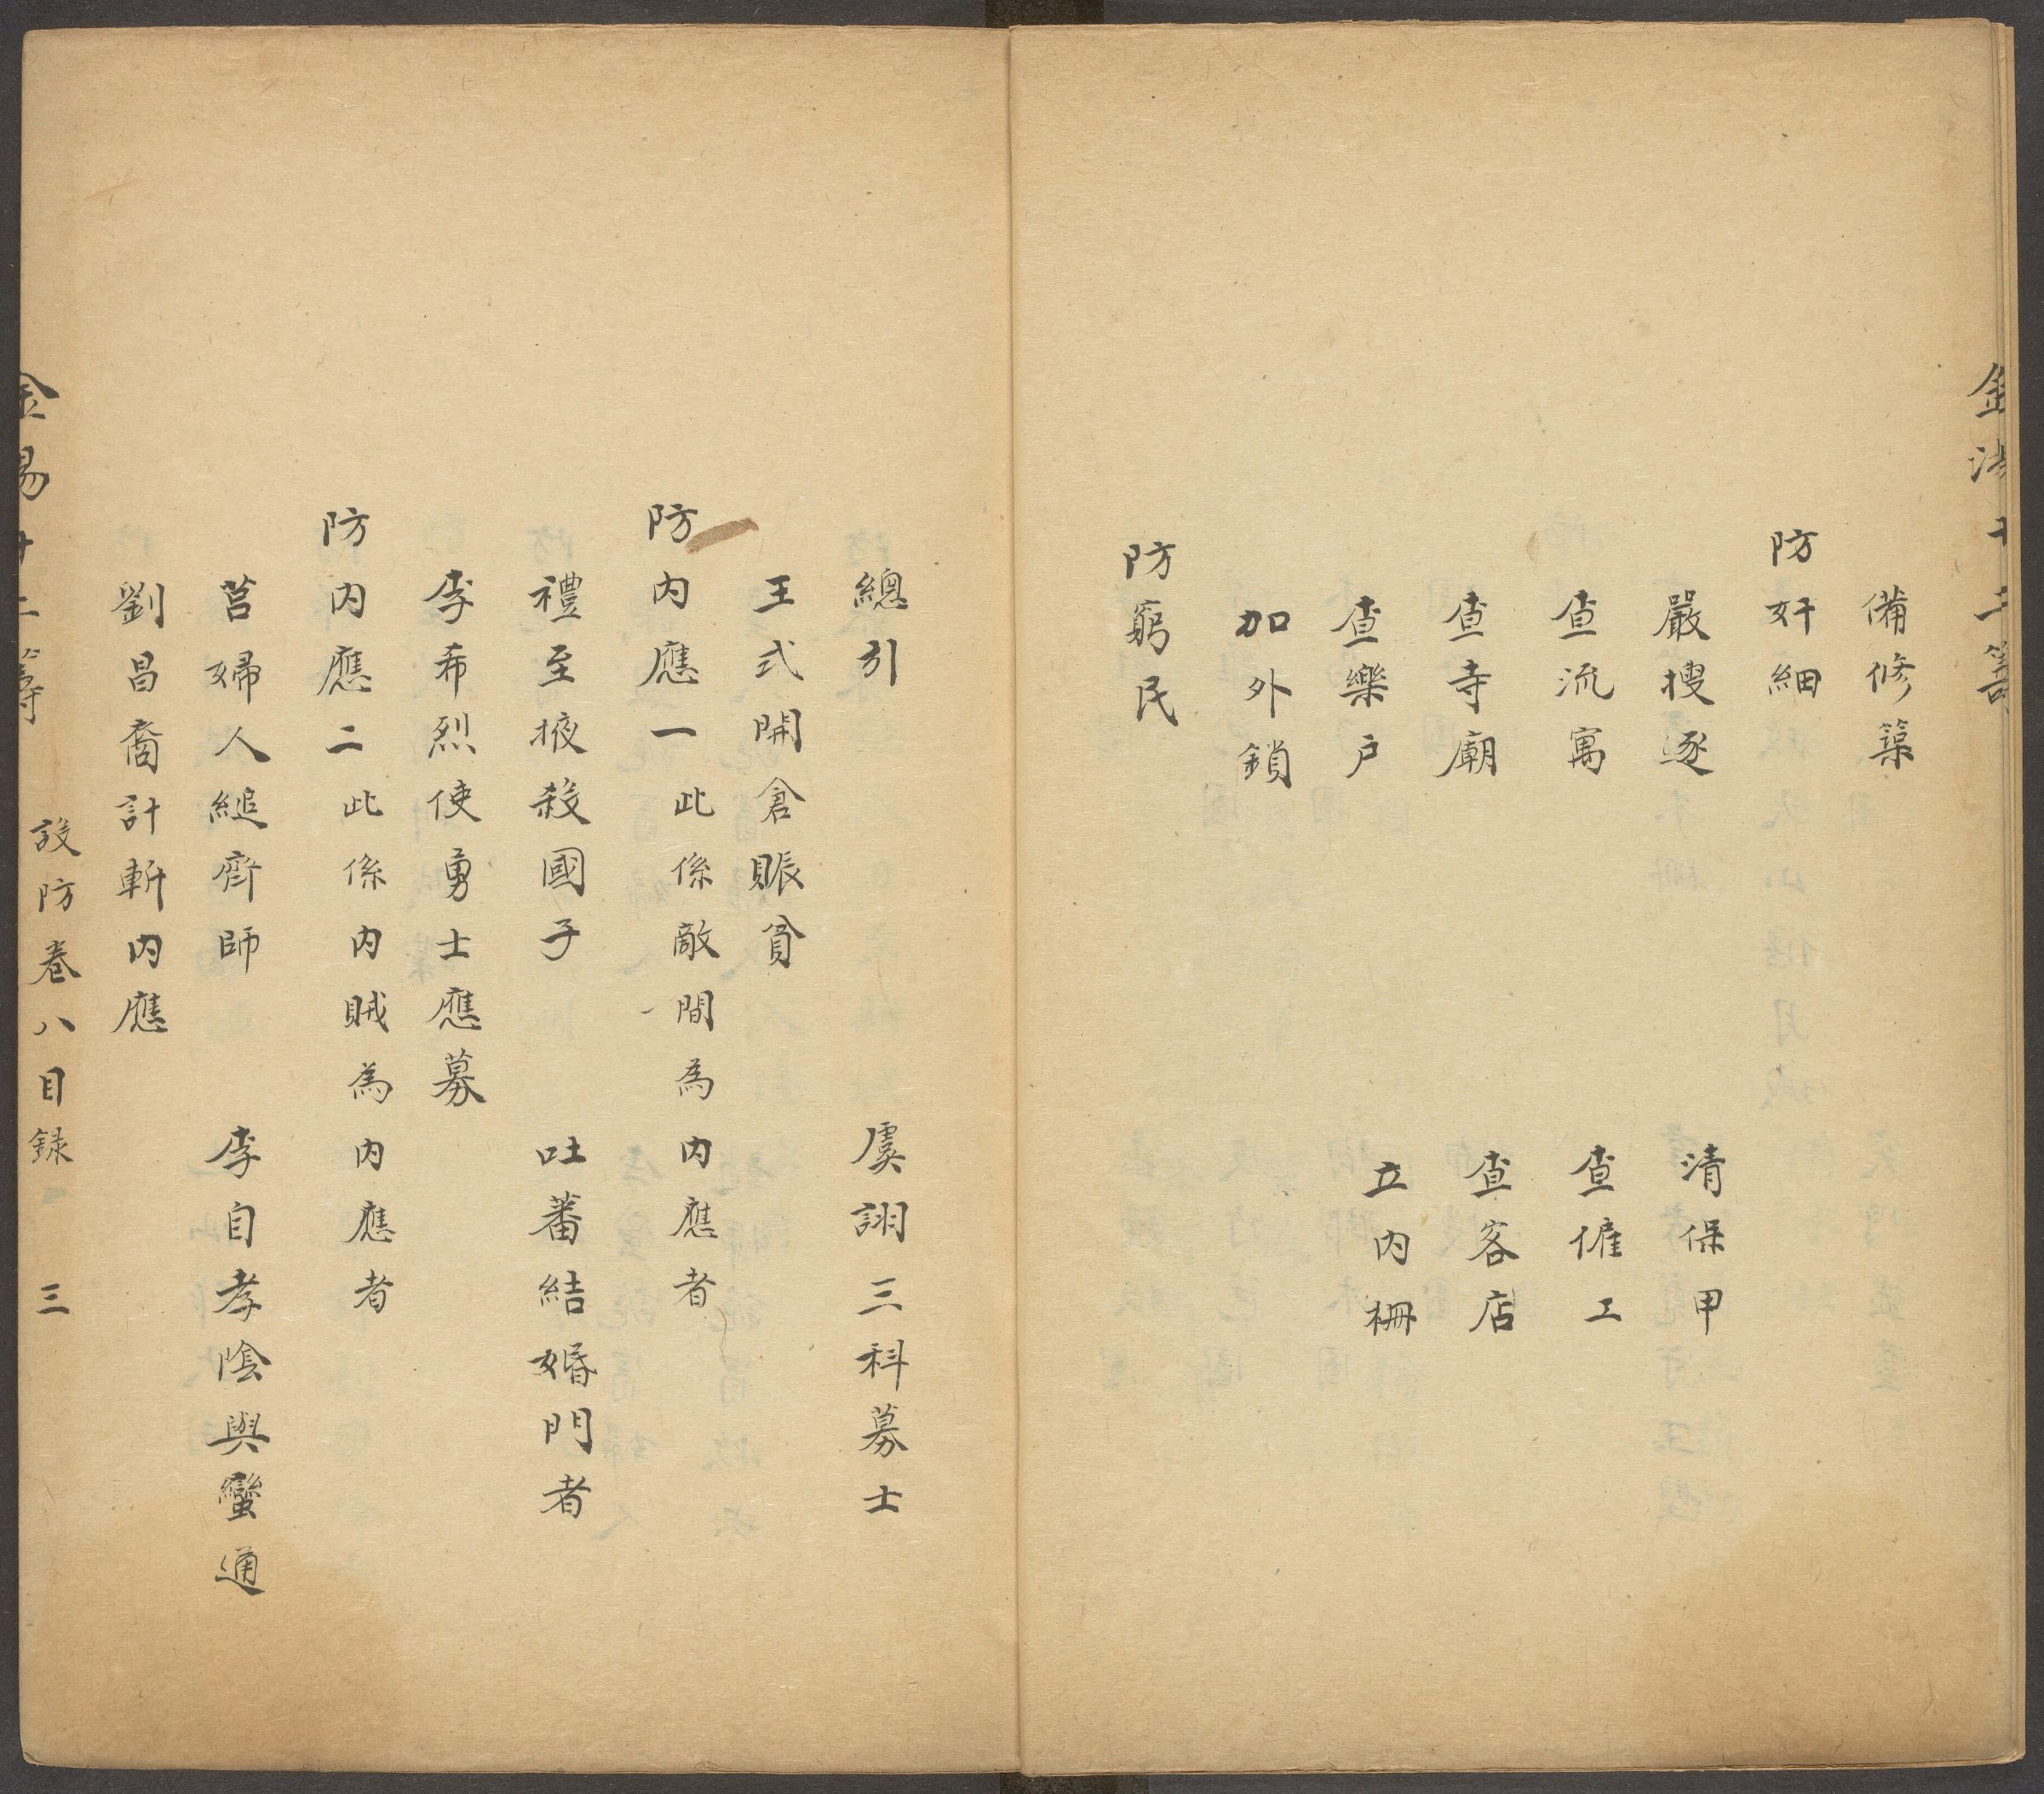 金湯十二籌
備修築
防奸細
嚴搜逐　清保甲
查流寓　查傭工
查寺廟　查客店
查樂户　立内柵
加外鎖
防窮民
總引　虞詡三科募士
王式開倉賑貧
防内應一　此係敵間為内應者
禮至掖殺國子　吐蕃結婚門者
李希烈使勇士應募
防内應二　此係内賊為内應者
莒婦人縋齊師　李自孝陰與蠻通
劉昌裔計斬内應
金湯十二籌　設防卷八目録　三